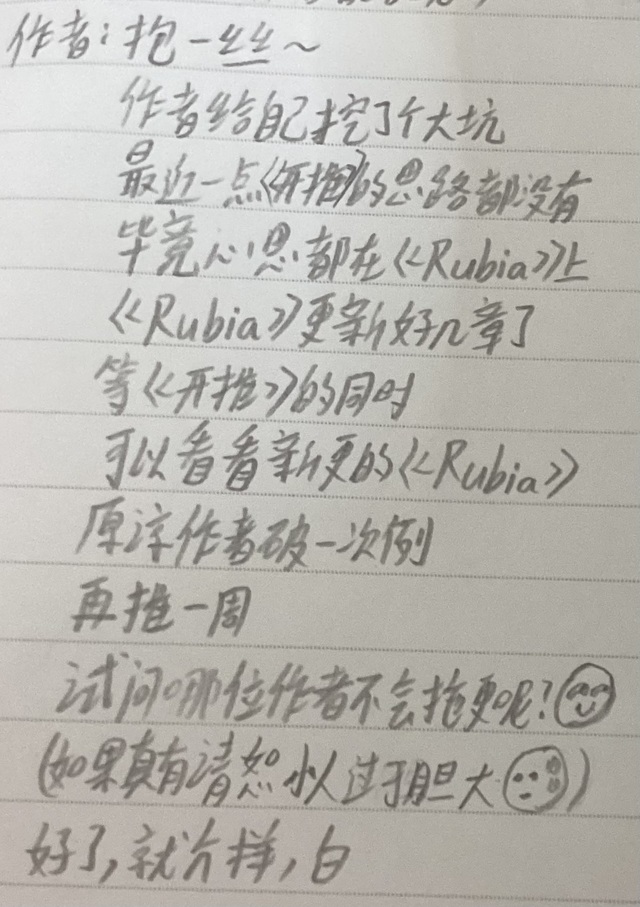 作者:抱一丝丝~
作者给自己挖了个大坑
最近一点《开推》的思路都没有
毕竟心思都在《Rubia》上
《Rubia》更新好几章了
等《开推》的同时
可以看看新更的《Rubia》
原谅作者破一次例
再推一周
试问哪位作者不会拖更呢?
(如果真有请恕小人过于胆大)
好了,就介样,白